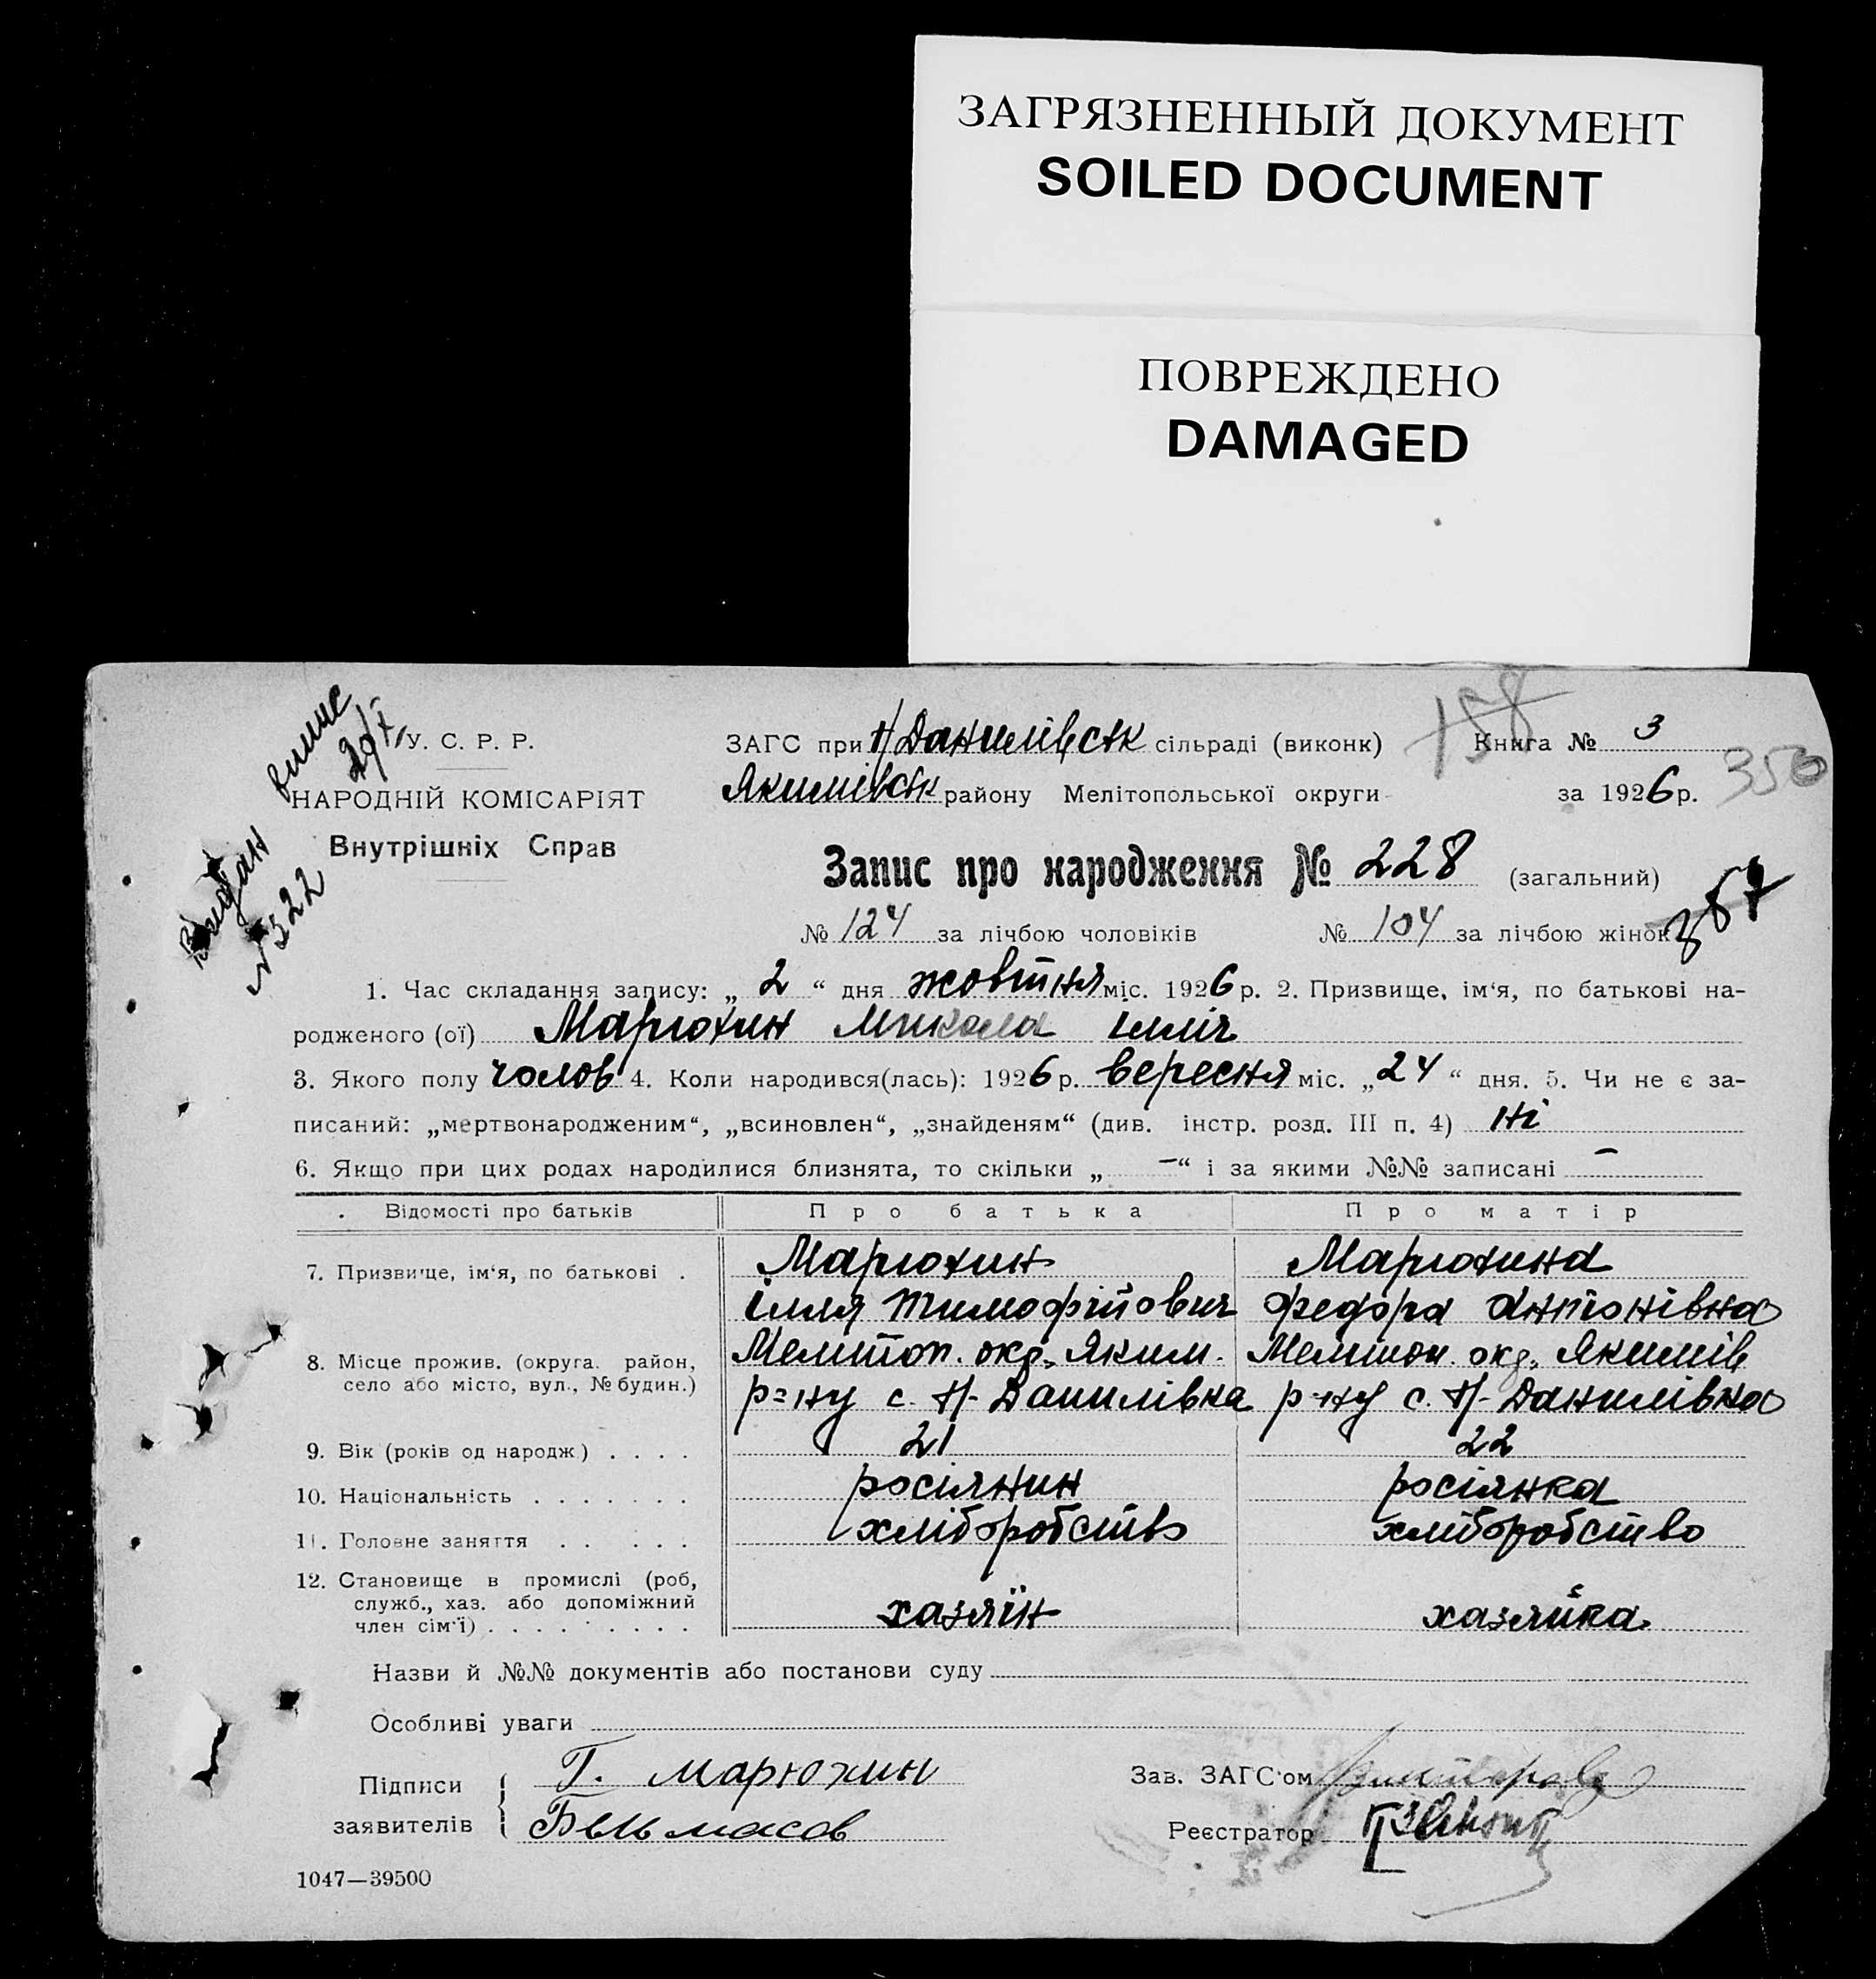 ЗАГРЯЗНЕННЫЙ ДОКУМЕНТ
SOILED DOCUMENT
ПОВРЕЖДЕНО
DAMAGED
випис
29/X
Видан
№ 322
У. С. Р. Р.
НАРОДНІЙ КОМІСАРІЯТ
Внутрішніх Справ
ЗАГС при Н/Данилівськ сільраді (виконк)
158
Книга № 3
Якимівськ району Мелітопольської округи
за 1926 р.
350
Запис про народження № 228 (загальний)
№ 124 за лічбою чоловіків № 104 за лічбою жінок
357
1. Час складання запису: „ 2 “ дня жовтня міс. 1926 р. 2. Призвище, ім‘я, по батькові на-
родженого (ої) Марюхин Микола Ілліч
3. Якого полу чолов 4. Коли народився(лась): 1926 р. вересня міс. „24“ дня. 5. Чи не є за-
писаний: „мертвонародженим“, „всиновлен“, „знайденям“ (див. інстр. розд. III п. 4) Ні
6. Якщо при цих родах народилися близнята, то скільки „ —“ і за якими №№ записані —
Відомості про батьків Про батька Про матір
7. Призвище, ім‘я, по батькові . Марюхин Марюхина
Ілля Тимофійович Федора Антонівна
8. Місце прожив. (округа. район, Меліտоп. окр. Яким. Мелітоп. окр. Якимів
село або місто, вул., № будин.) р=ну с. Н-Данилівка р-ну с. Н-Данилівка
9. Вік (років од народж) . . . . 21 22
10. Національність . . . . . . . росіянин росіянка
11. Головне заняття . . . . . хліборобство хліборобство
12. Становище в промислі (роб,
служб., хаз. або допоміжний
член сім‘ї) . . . . . . . . . хазяїн хазяйка
Назви й №№ документів або постанови суду
Особливі уваги
Підписи Г. Марюхин
заявителів Бельмасов
Зав. ЗАГС‘ом
Реєстратор
1047—39500